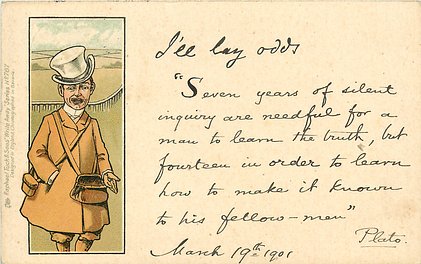 I'll lay odds
"Seven years of silent
inquiry are needful for a
man to learn the truth, but
fourteen in order to learn
how to make it known
to his fellow-men"
Plato.
March 19th 1901
Raphael Tuck & Sons' "Write Away" Series Nº